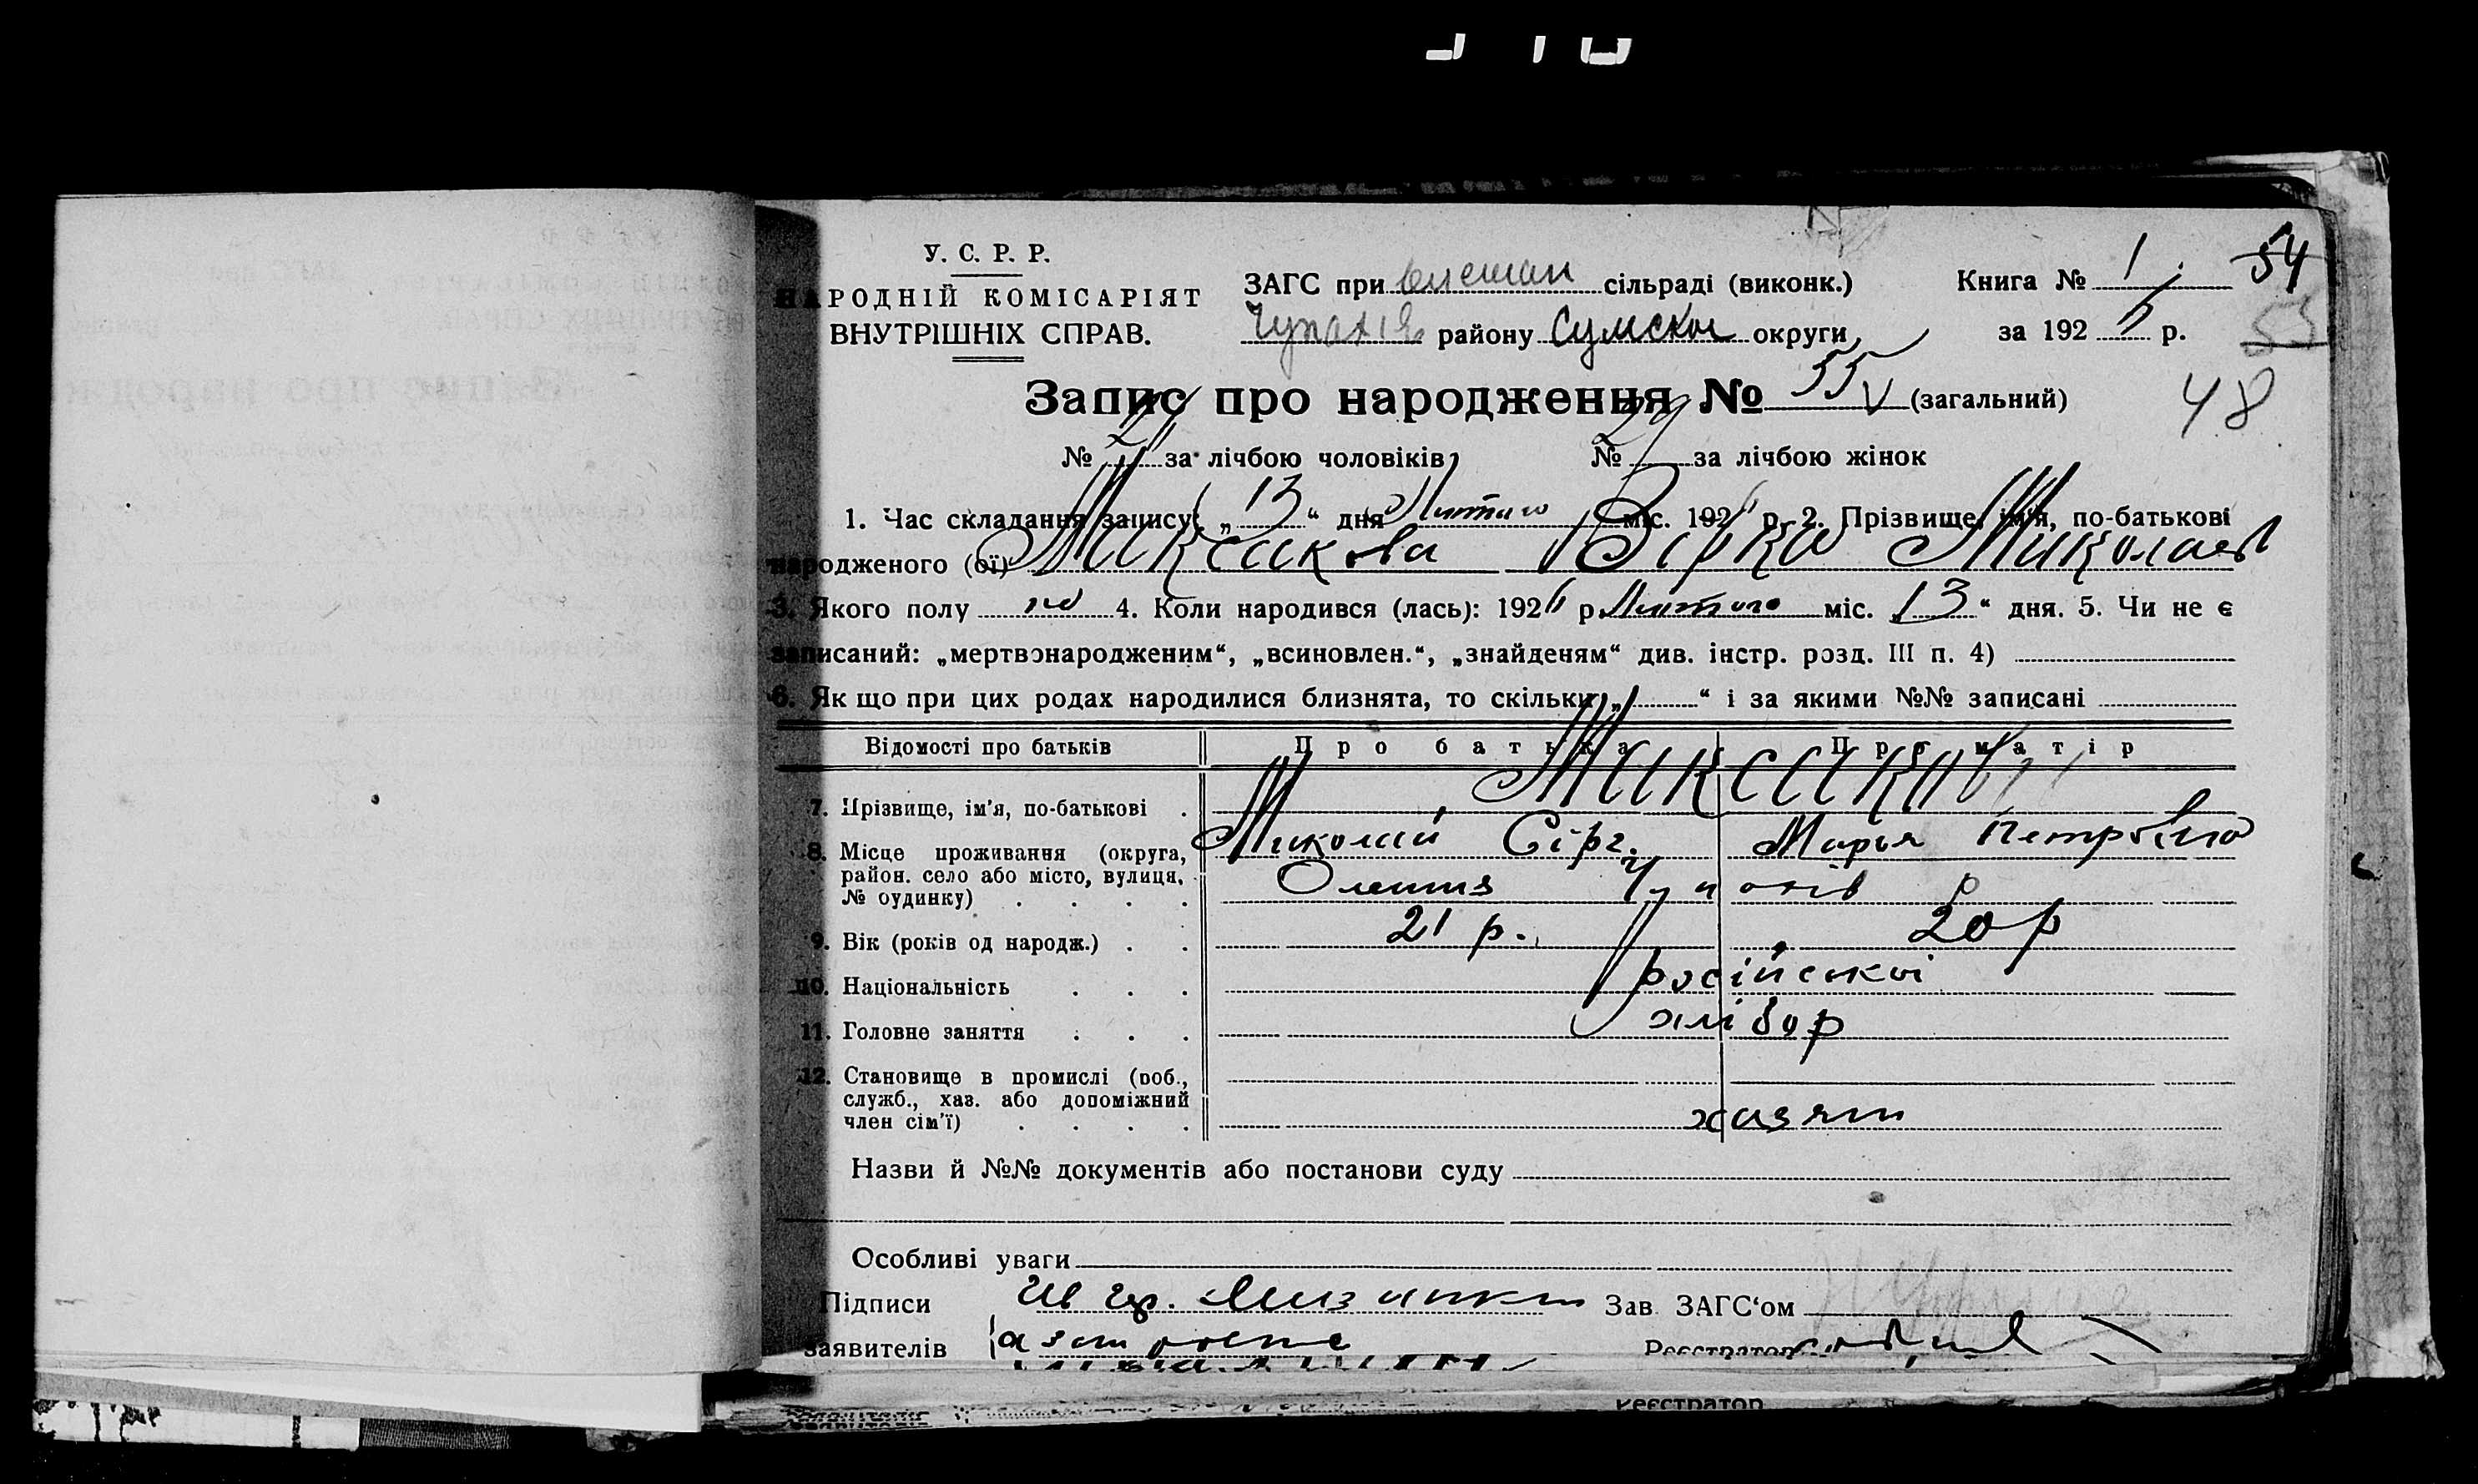 У. С. Р. Р.
НАРОДНІЙ КОМІСАРІЯТ
ВНУТРІШНІХ СПРАВ.
ЗАГС при олешан сільраді (виконк.)
Чупахів району Сумскої округи
Книга № 1
за 1926 р.
54
53
48
Запис про народження № 55 (загальний)
№ за лічбою чоловіків № 29 за лічбою жінок
1. Час складання запису: „13“ дня Лютого міс. 1926 р. 2. Прізвище, ім'я, по-батькові
народженого (ої) Миксакова Вірка Миколаев
3. Якого полу 4. Коли народився (лась): 1926 р. Лютого міс. „13“ дня. 5. Чи не є
записаний: „мертвонародженим“, „всиновлен.“, „знайденям“ див. інстр. розд. III п. 4)
6. Як що при цих родах народилися близнята, то скільки „ “ і за якими №№ записані
Відомості про батьків Про батька Про матір
7. Прізвище, ім'я, по-батькові . Миксакови
Миколай Сірг. Марья Петровна
8. Місце проживання (округа,
район. село або місто, вулиця,
№ будинку) . . . . Олешня Чупахів р
9. Вік (років од народж.) . . 21 р. 20 р
10. Національність . . . російскої
11. Головне заняття . . . хлібор
12. Становище в промислі (роб.,
служб., хаз. або допоміжний
член сім'ї) . . . . хазяїн
Назви й №№ документів або постанови суду
Особливі уваги
Підписи гр. Зав. ЗАГС‘ом
заявителів Реєстратор
Реєстратор